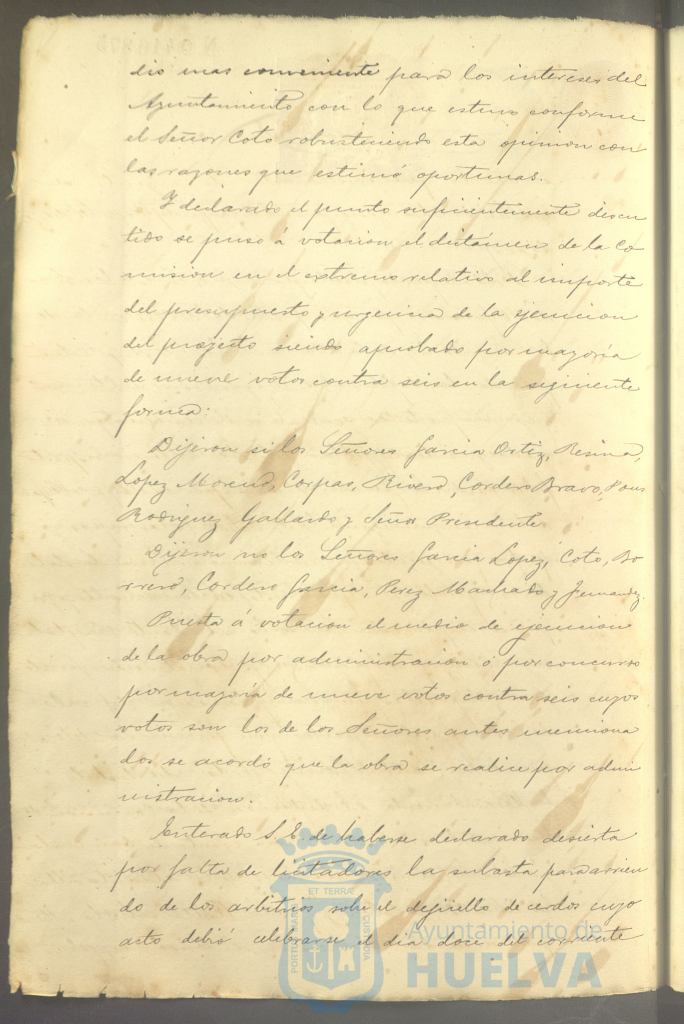 dio mas conveniente para los intereses del
Ayuntamiento con lo que estuvo conforme
el Señor Coto robusteciendo esta opinion con
las razones que estimó oportunas.
Y declarado el punto suficientemente discu
tido se puso á votacion el dictámen de la Co
mision en el extremo relativo al importe
del presupuesto y urgencia de la ejecucion
del proyecto siendo aprobado por mayoria
de nueve votos contra seis en la siguiente
forma:
Dijeron si los Señores Garcia Ortiz, Resina,
Lopez Moreno, Corpas, Rivero, Cordero Bravo, Pons
Rodriguez Gallardo y Señor Presidente
Dijeron no los Señores Garcia Lopez, Coto, Bo
rrero, Cordero Garcia, Perez Machado y Fernandez.
Puesta á votacion el medio de ejecucion
de la obra por administracion ó por concurso
por mayoría de nueve votos contra seis cuyos
votos son los de los Señores antes menciona
dos se acordó que la obra se realice por admi
nistracion.
Enterado S. E. de haberse declarado desierta
por falta de licitadores la subasta para arrien
do de los arbitrios sobre el degüello de cerdos cuyo
acto debió celebrarse el dia doce del corriente
ET TERRÆ
PORTUS MARIS
CUSTODIA
Ayuntamiento de
HUELVA